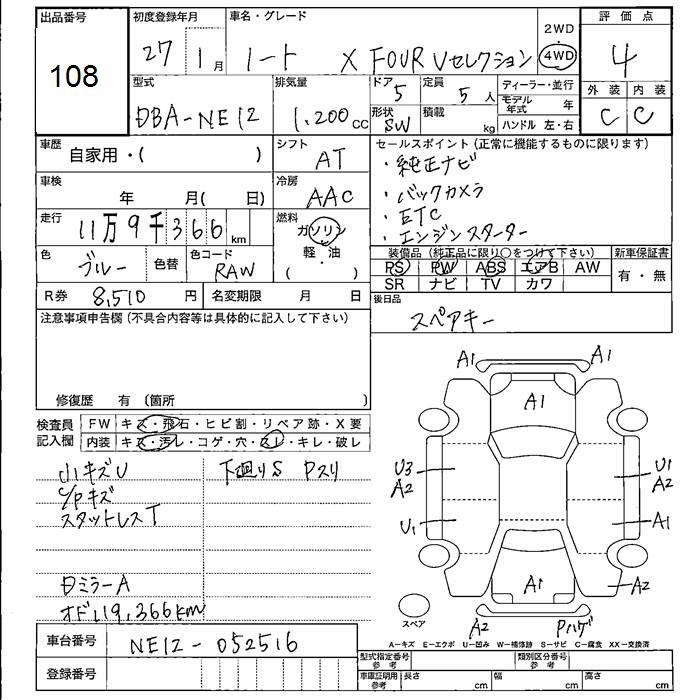 出品番号
108
初度登録年月
27 1月
車名・グレード
ノート X FOUR Vセレクション
2WD
4WD
評価点
4
外装 内装
C C
型式
DBA-NE12
排気量
1.200cc
ドア
5
定員
5人
形状
SW
積載
kg
ディーラー・並行
モデル年式 年
ハンドル 左・右
車歴
自家用・( )
シフト
AT
セールスポイント (正常に機能するものに限ります)
・純正ナビ
・バックカメラ
・ETC
・エンジンスターター
車検
年 月( 日)
冷房
AAC
走行
11万9千366km
燃料
ガソリン
軽・油
( )
色
ブルー
色替
色コード
RAW
装備品 (純正品に限り○をつけて下さい)
PS PW ABS エアB AW
SR ナビ TV カワ
新車保証書
有・無
R券 8,510円
名変期限 月 日
後日品
スペアキー
注意事項申告欄 (不具合内容等は具体的に記入して下さい)
修復歴 有 〔箇所 〕
検査員記入欄
FW キズ・飛石・ヒビ割・リペア跡・X要
内装 キズ・汚レ・コゲ・穴・スレ・キレ・破レ
小キズU
下廻りS Pスリ
C/Pキズ
スタットレスT
ミラーA
オド119,366km
A1 A1
A1
U3
A2
U1
A2
U1
A1
A1
A2
スペア
A2
Pハゲ
A―キズ E―エクボ U―凹み W―補修跡 S―サビ C―腐食 XX―交換済
車台番号
NE12-052516
登録番号
型式指定番号 参考
類別区分番号 参考
車庫証明用 参考
長さ cm
幅 cm
高さ cm